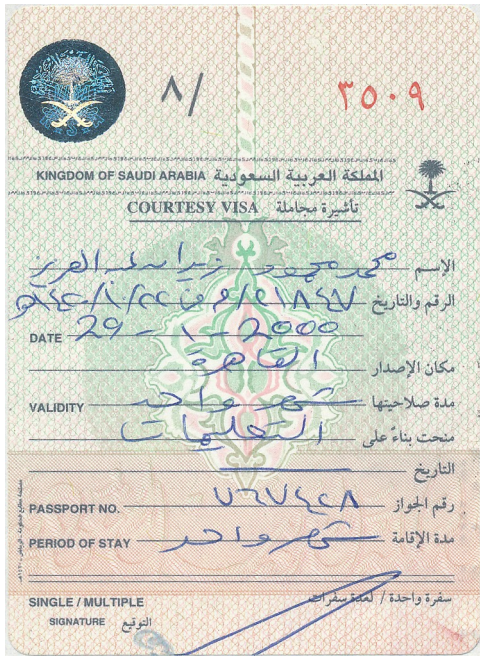 ٨/
٣٥٠٩
KINGDOM OF SAUDI ARABIA المملكة العربية السعودية
COURTESY VISA تأشيرة مجاملة
الإسم محمد محمود زيدان عبد العزيز
الرقم والتاريخ ١٤٢٠/١٠/٢٢هـ
DATE 29-1-2000
مكان الإصدار القاهرة
VALIDITY شهر واحد مدة صلاحيتها
منحت بناءً على التعليمات
التاريخ
PASSPORT NO. ٧٦٧٤٢٨ رقم الجواز
PERIOD OF STAY شهر واحد مدة الإقامة
SINGLE / MULTIPLE سفرة واحدة / لعدة سفرات
SIGNATURE التوقيع